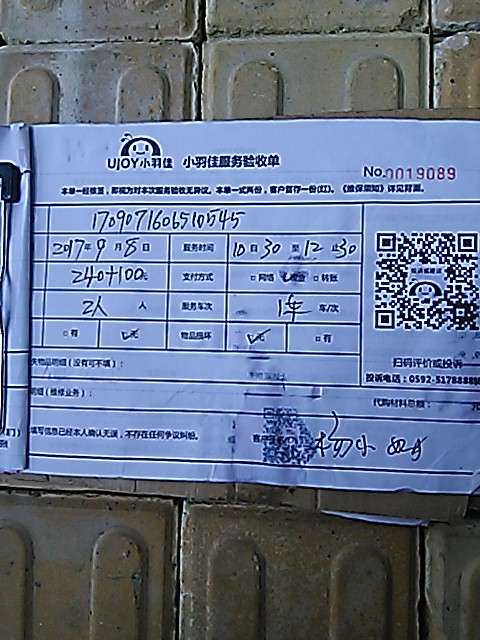 UJOY小羽佳 小羽佳服务验收单
No.0019089
本单一经核签,即视为对本次服务验收无异议。本单一式两份,客户留存一份(红)。《维保须知》详见背面。
1709071606510545
2017年9月8日 服务时间 10时30至12止30
240+100元 支付方式 □网络 □现金 □转账
2人 人 服务车次 1车 车/次
□有 ☑无 物品损坏 ☑无 □有
失物品明细(没有可不填):
扫码评价或投诉
投诉电话:0592-5178888
明细(维修业务): 代购材料总额:
填写信息已经本人确认无误,不存在任何争议纠纷。
客户签